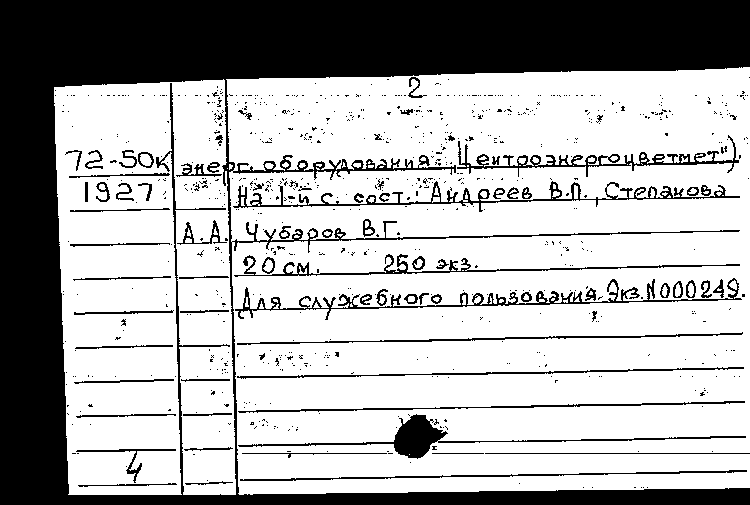 2
72-50к энерг. оборудования „Центроэнергоцветмет").
1927 На 1-й с. сост.: Андреев В.П., Степанова
А.А., Чубаров В.Г.
20 см. 250 экз.
Для служебного пользования. Экз.N000249.
4